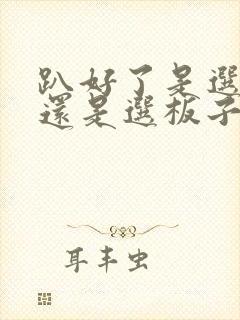 趴好了是選
還是選板子
耳丰虫